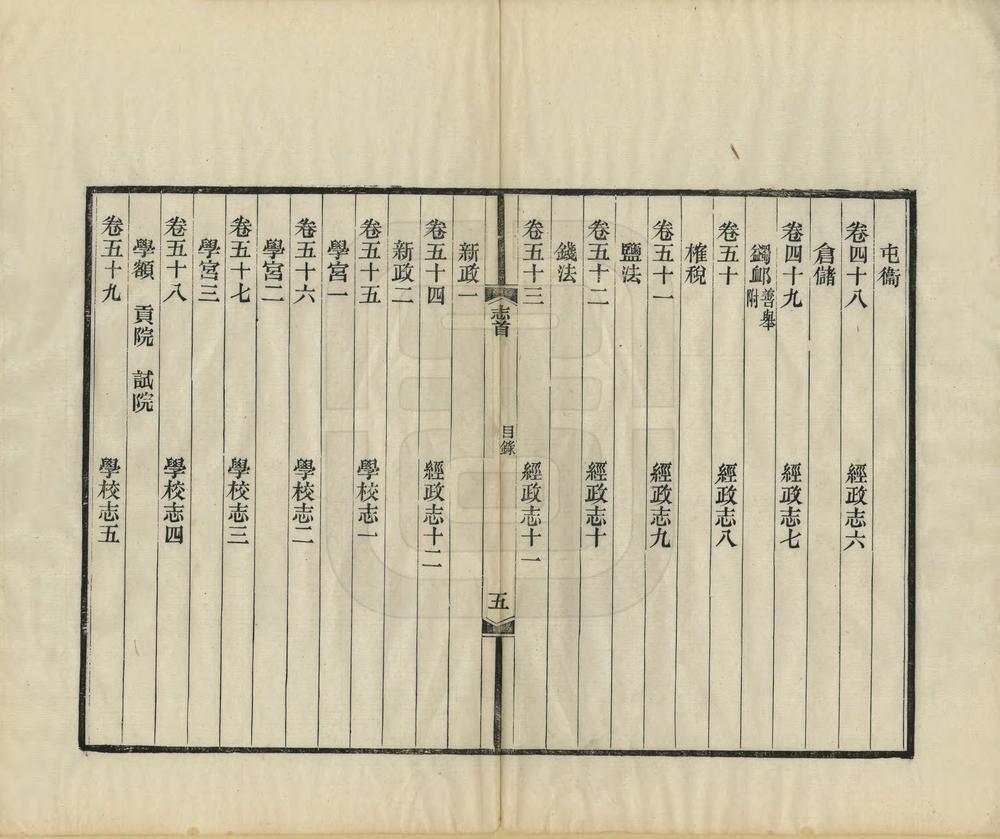 屯衞
卷四十八 經政志六
倉儲
卷四十九 經政志七
蠲䘏 善舉附
卷五十 經政志八
榷稅
卷五十一 經政志九
鹽法
卷五十二 經政志十
錢法
卷五十三 經政志十一
志首 目錄 五
新政一
卷五十四 經政志十二
新政二
卷五十五 學校志一
學宮一
卷五十六 學校志二
學宮二
卷五十七 學校志三
學宮三
卷五十八 學校志四
學額 貢院 試院
卷五十九 學校志五